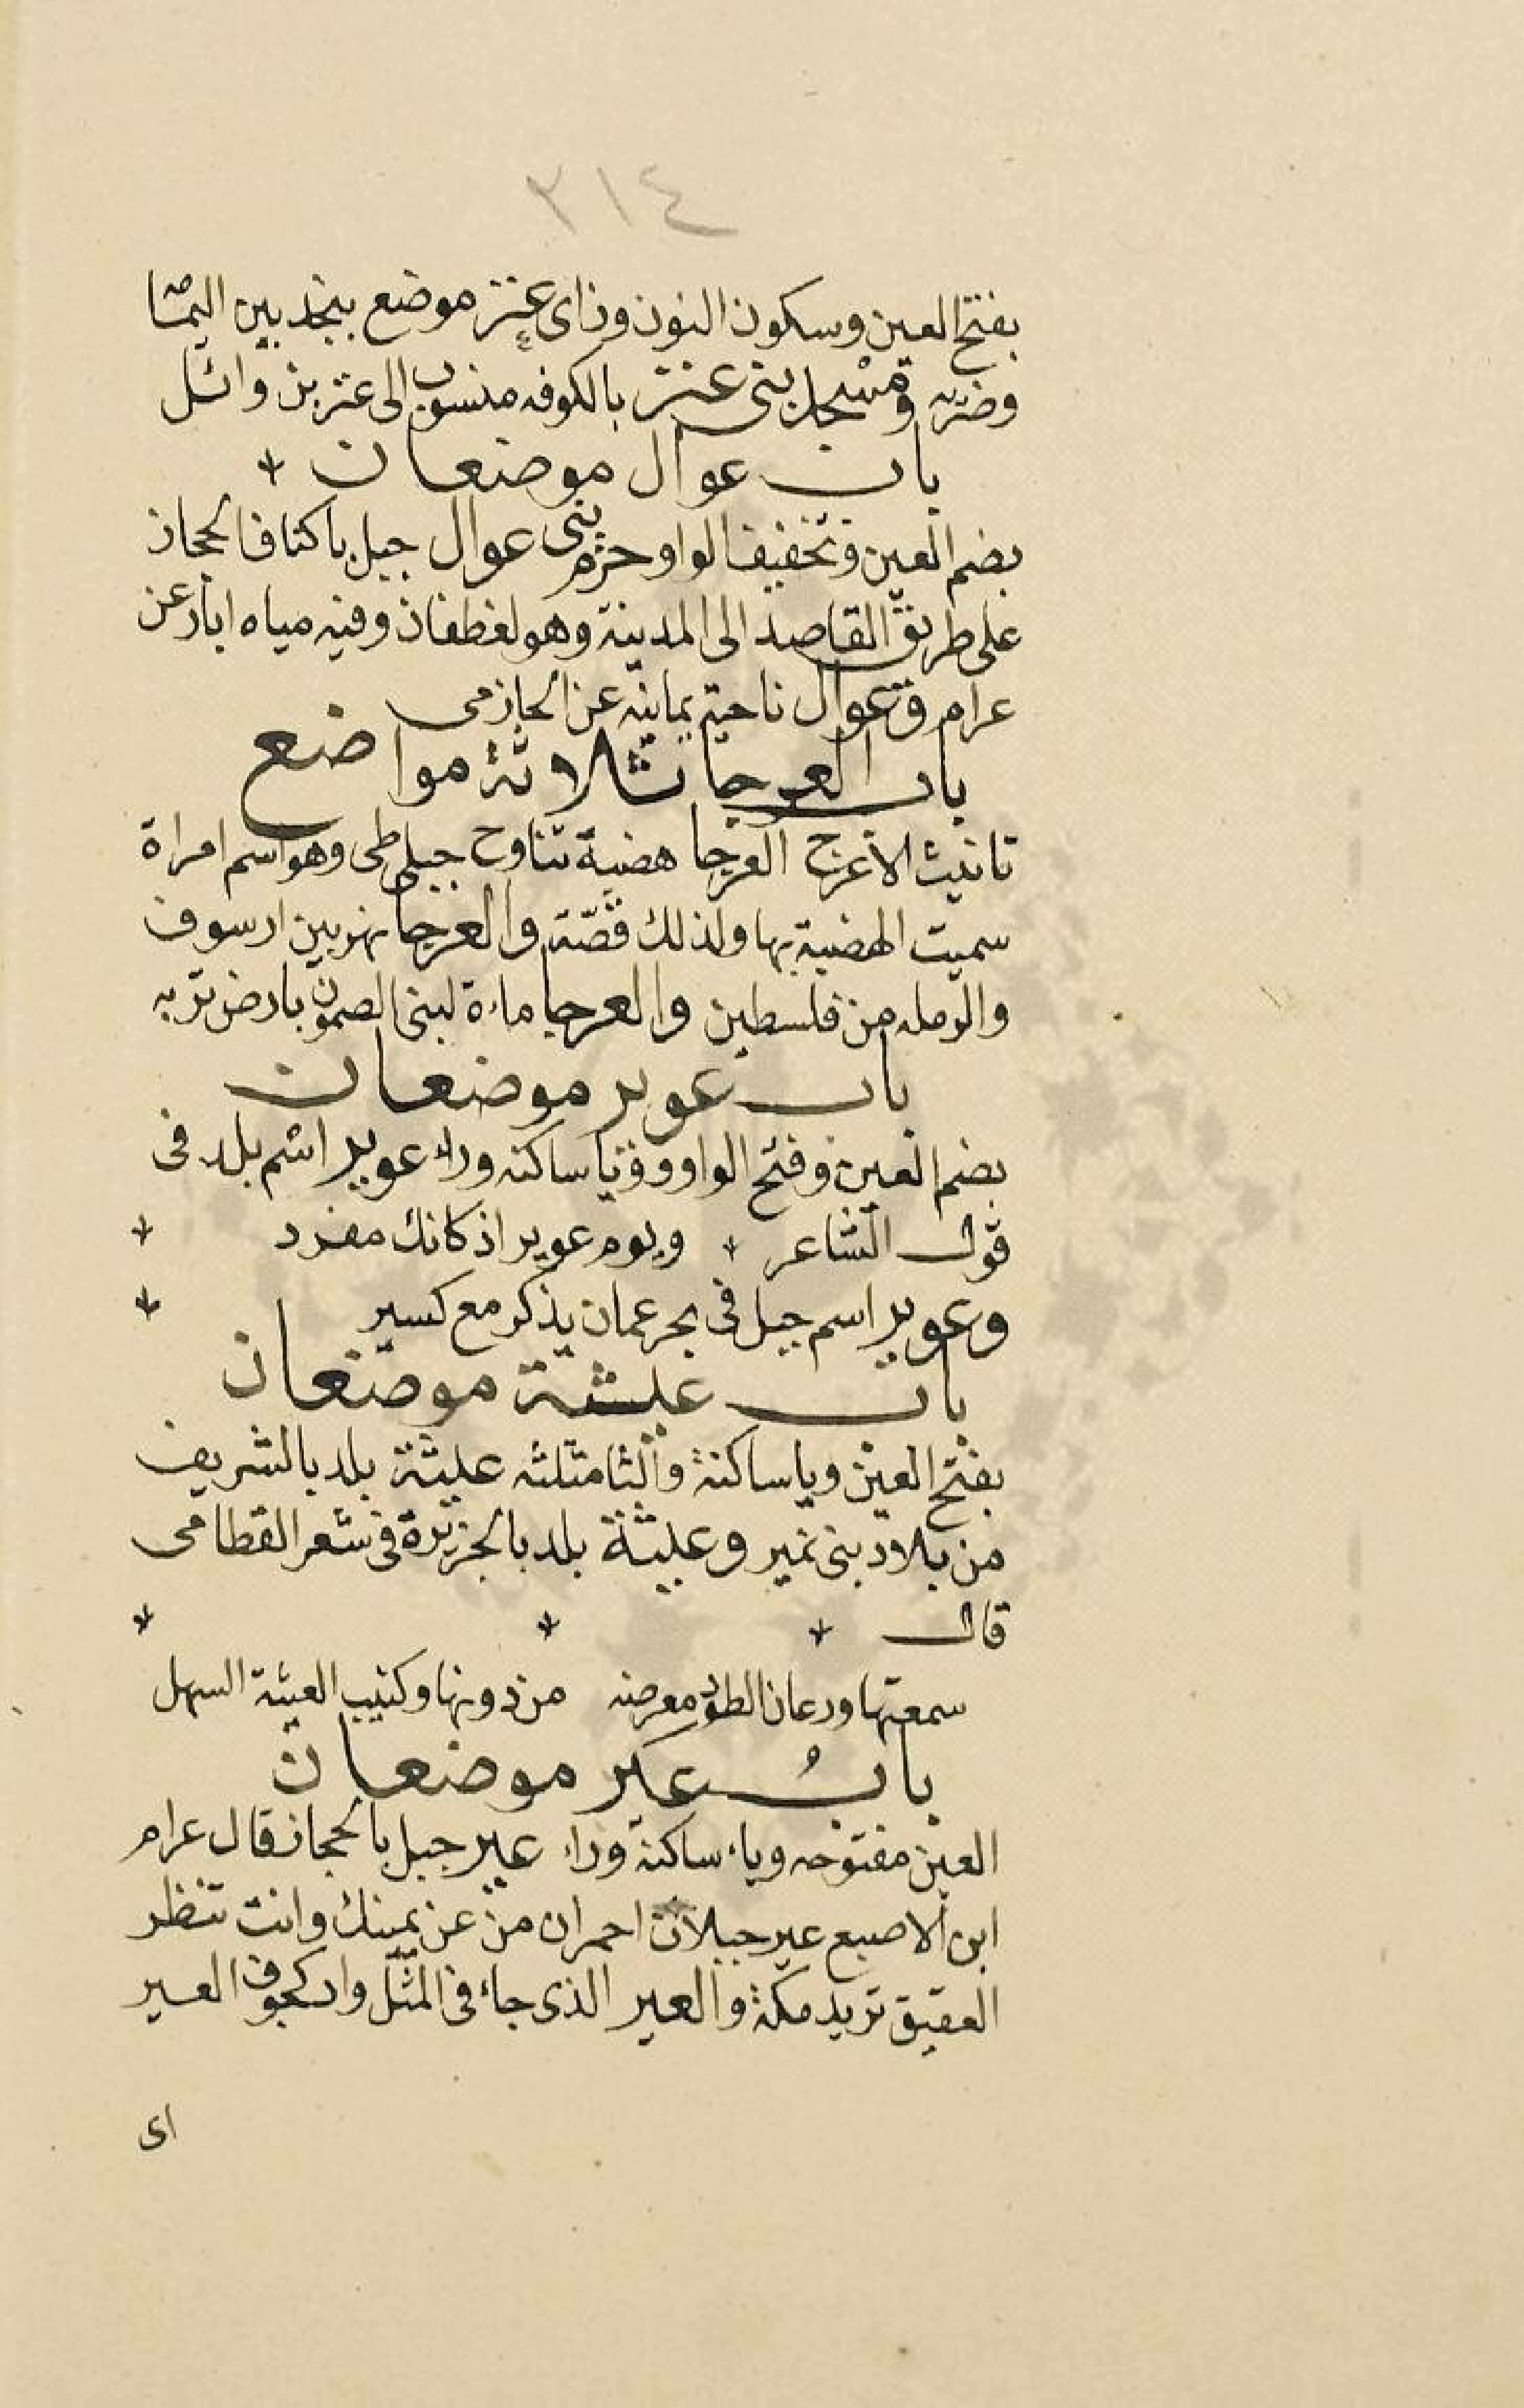 ٣١٤
بفتح العين وسكون النون وزاى عنز موضع بنجد بين اليمامة
وضريه ومسجد بنى عنز بالكوفه منسوب الى عنز بن وائل
باب عوال موضعان
بضم العين وتخفيف الواو حزم بنى عوال جبل باكناف الحجاز
على طريق القاصد الى المدينة وهو لغطفان وفيه مياه ابار عن
عرام وعوال ناحية يمانيه عن الحازمى
باب العرجا ثلاثة مواضع
تانيث الأعرج العرجا هضبة تناوح جبلى طى وهو اسم امراة
سميت الهضبة بها ولذلك قصّة والعرجا نهر بين ارسوف
والرمله من فلسطين والعرجا ماءة لبنى الصموت بارض تربه
باب عوير موضعان
بضم العين وفتح الواو ويا ساكنه وراء عوير اسم بلد فى
قول الشاعر ويوم عوير اذ كانك مفرد
وعوير اسم جبل فى بحر عمان يذكر مع كسير
باب عيثة موضعان
بفتح العين ويا ساكنة والثا مثلثه عيثة بلد بالشريف
من بلاد بنى نمير وعيثة بلد بالجزيرة فى شعر القطامى
قال
سمعتها ورعان الطود معرضه من دونها وكثيب العيثة السهل
بابُ عير موضعان
العين مفتوحه وياء ساكنة وراء عير جبل بالحجاز قال عرام
ابن الاصبع عير جبلان احمران من عن يمينك وانت تنظر
العقيق تريد مكة والعير الذى جاء فى المثل واد كجوف العير
اى